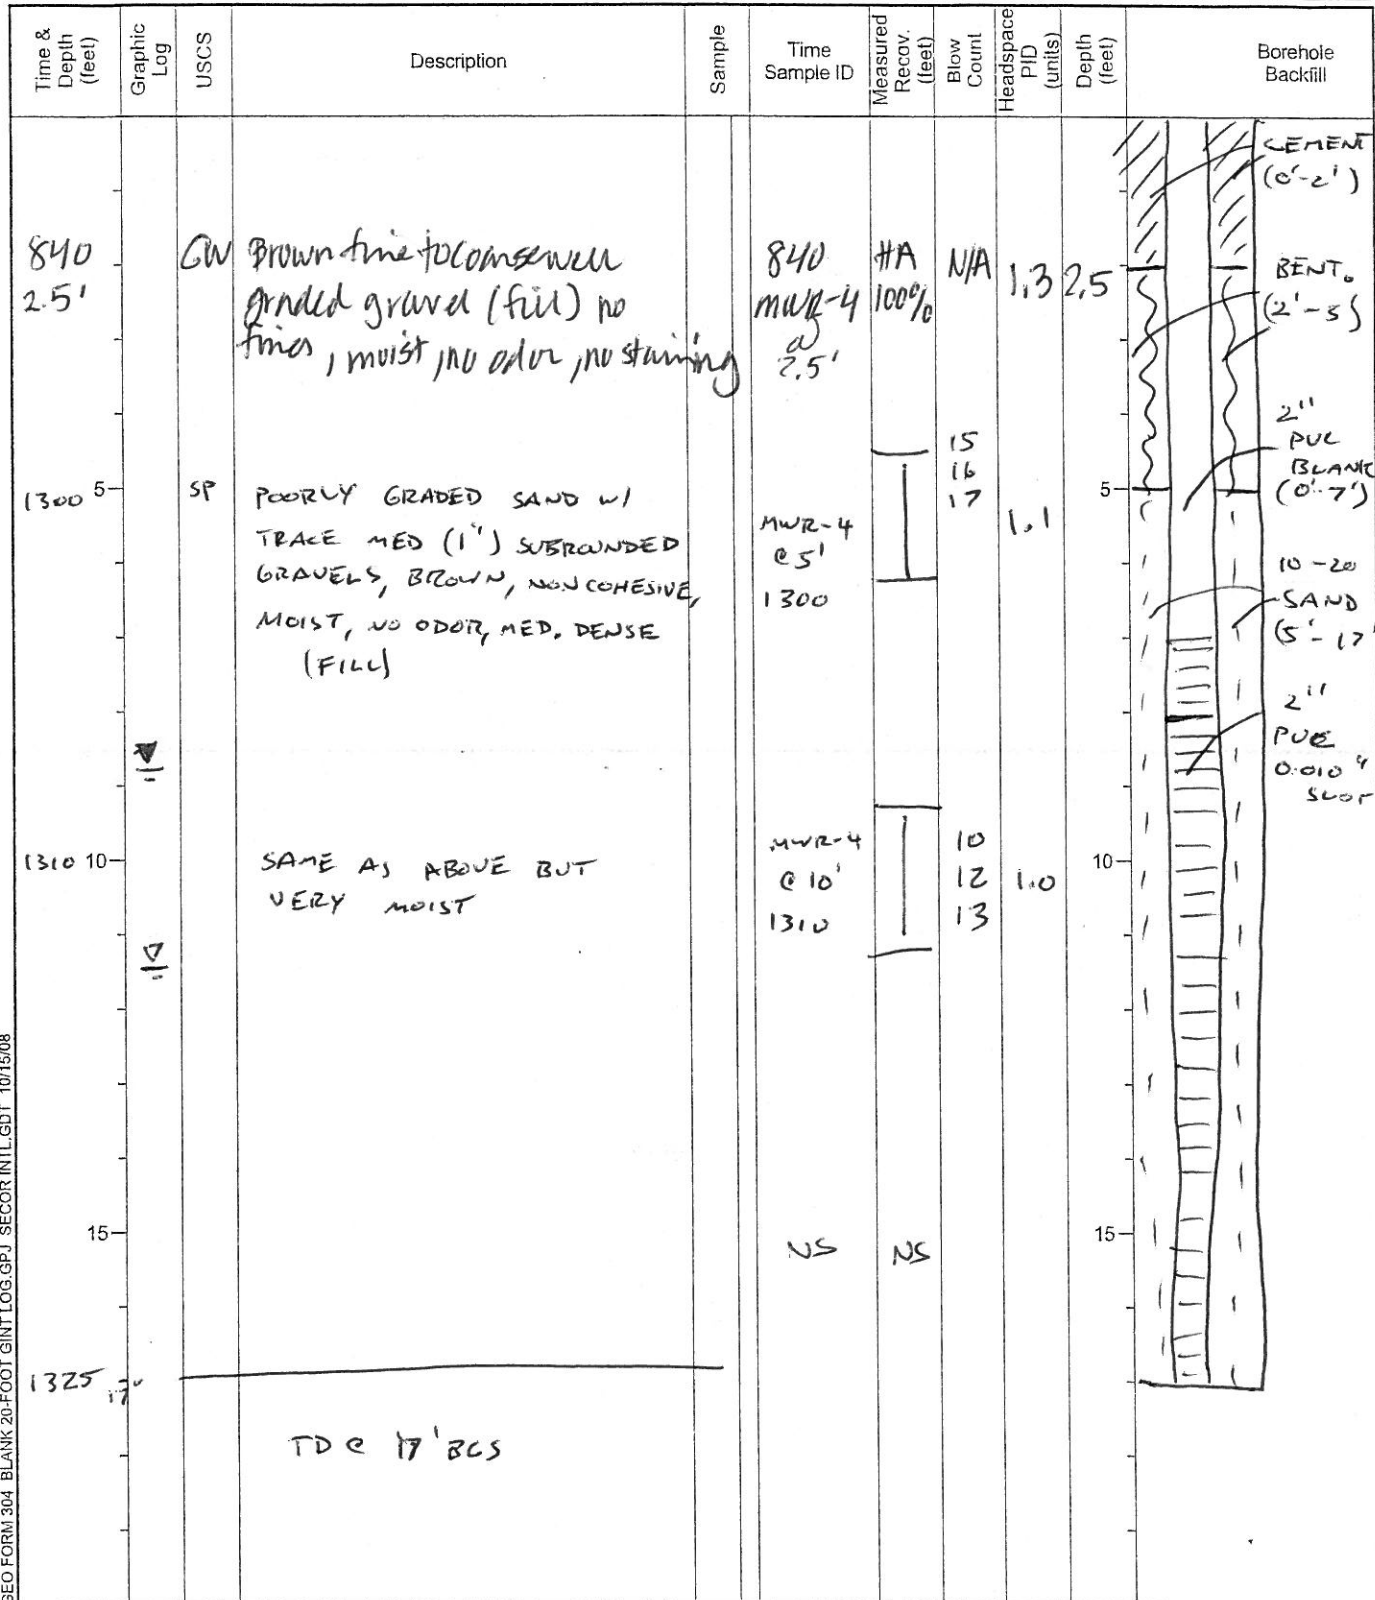 Time & Depth (feet)
Graphic Log
USCS
Description
Sample
Time Sample ID
Measured Recov. (feet)
Blow Count
Headspace PID (units)
Depth (feet)
Borehole Backfill
CEMENT
(0'-2')
840
2.5'
GW
Brown fine to coarse well
graded gravel (fill) no
fines, moist, no odor, no staining
840
MWR-4
@
2.5'
HA
100%
N/A
1.3
2.5
BENT.
(2'-5')
2"
PVC
BLANK
(0'-7')
1300
5
SP
POORLY GRADED SAND W/
TRACE MED (1") SUBROUNDED
GRAVELS, BROWN, NONCOHESIVE,
MOIST, NO ODOR, MED. DENSE
(FILL)
MWR-4
@ 5'
1300
15
16
17
1.1
5
10-20
SAND
(5'-17'
2"
PVC
0.010"
SLOT
1310
10
SAME AS ABOVE BUT
VERY MOIST
MWR-4
@ 10'
1310
10
12
13
1.0
10
15
NS
NS
15
1325
17'
TD @ 17' BGS
GEO FORM 304 BLANK 20-FOOT GINT LOG.GPJ SECOR INTL.GDT 10/15/08